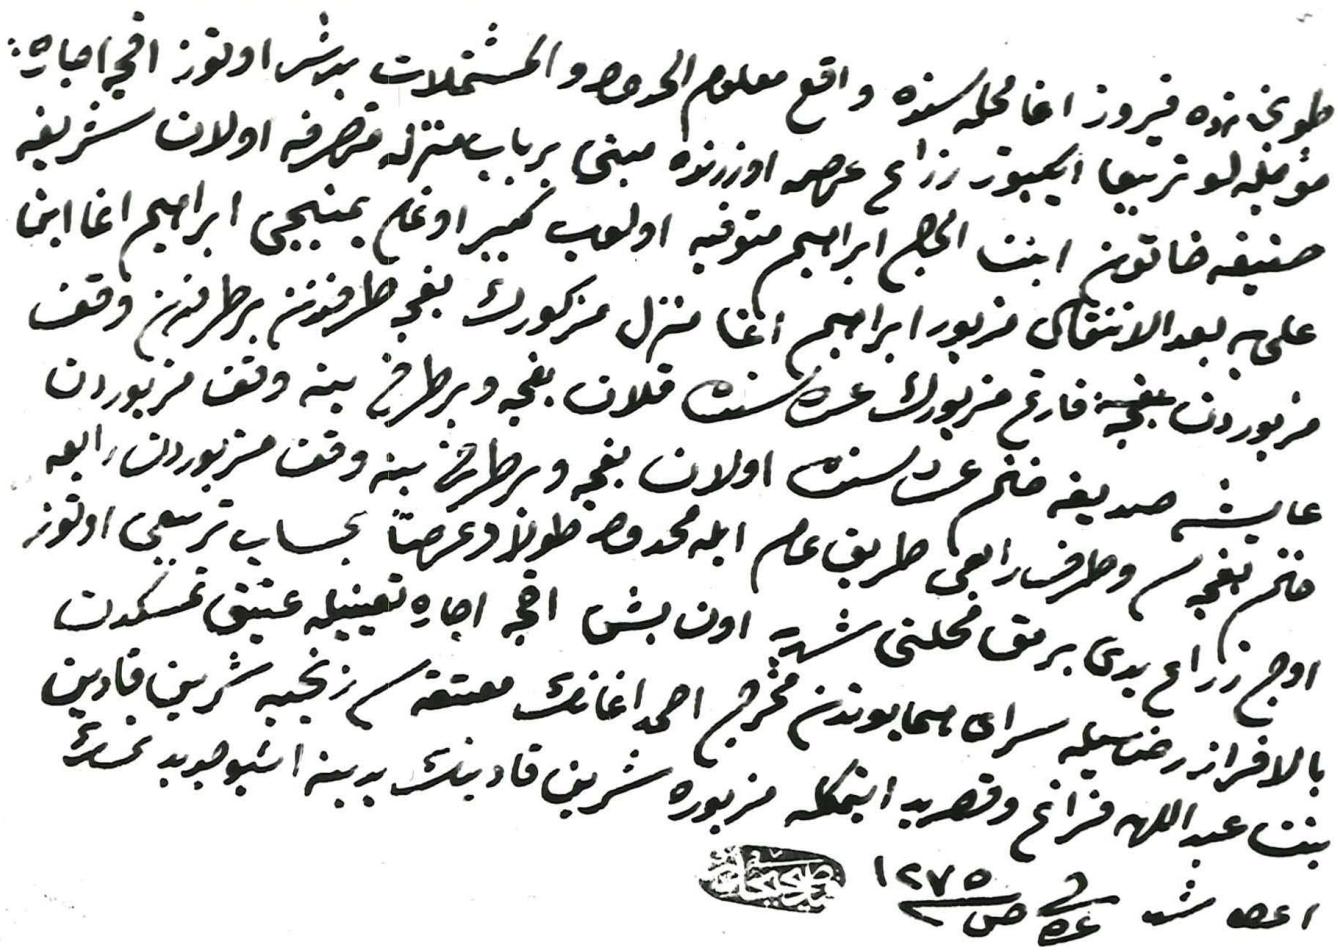 طوپخانه‌ده فیروز اغا محله‌سنده واقع معلوم الحدود و المشتملات بدشر اوتوز اقچه اجاره
مؤجله‌لو تربیعا ایکیوز زراع عرصه اوزرنده مبنی بر باب منزله متصرفه اولان شریفه
حنیفه خاتون ابنت الحاج ابراهیم متوفیه اولوب کبیر اوغلی یمنیجی ابراهیم اغا ابن
علی یه بعد الانتقال مزبور ابراهیم اغا منزل مذکورك بغچه طرفندن بر طرفدن وقف
مزبوردن فارغ مزبورك عهده‌سنده قلان بغچه و بر طرفی ینه وقف مزبوردن
عایشه صدیقه خانم عهده‌سنده اولان بغچه و بر طرفی ینه وقف مزبوردن رابعه
خانم بغچه‌سی و طرف رابعی طریق عام ایله محدود طولا و عرضا بحساب تربیعی اوتوز
اوچ زراع یدی برمق محلنی شهریه اون بش اقچه اجاره تعیینیله عتیق تمسکدن
بالافراز رضاسیله سرای همایوندن مخرج احمد اغانك معتقه‌سی زنجیه شرین قادین
بنت عبد الله فراغ وقصرید ایتمکله مزبوره شرین قادینك یدینه اشبو جدید تمسك
اعطا شد فی ص ١٢٧٥